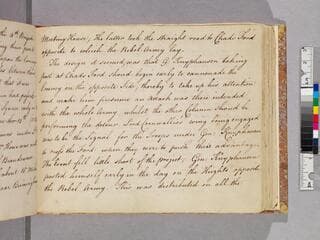 Meeting House, The latter took the straight road to Chads Ford
opposite to which the Rebel Army lay.
The design it seemed was that G. Knyphausen taking
post at Chads Ford should begin early to cannonade the
Enemy on the opposite Side, thereby to take up his attention
and make him presume an attack was then intended
with the whole Army, whilst the other Column should be
performing the detour. Lord Cornwallis's wing being engaged
was to be the Signal for the Troops under Genl. Knyphausen
to pass the Ford when they were to push their advantage.
The Event fell little short of the project. Gen. Knyphausen
posted himself early in the day on the Heights opposite
the Rebel Army. This was distributed on all the